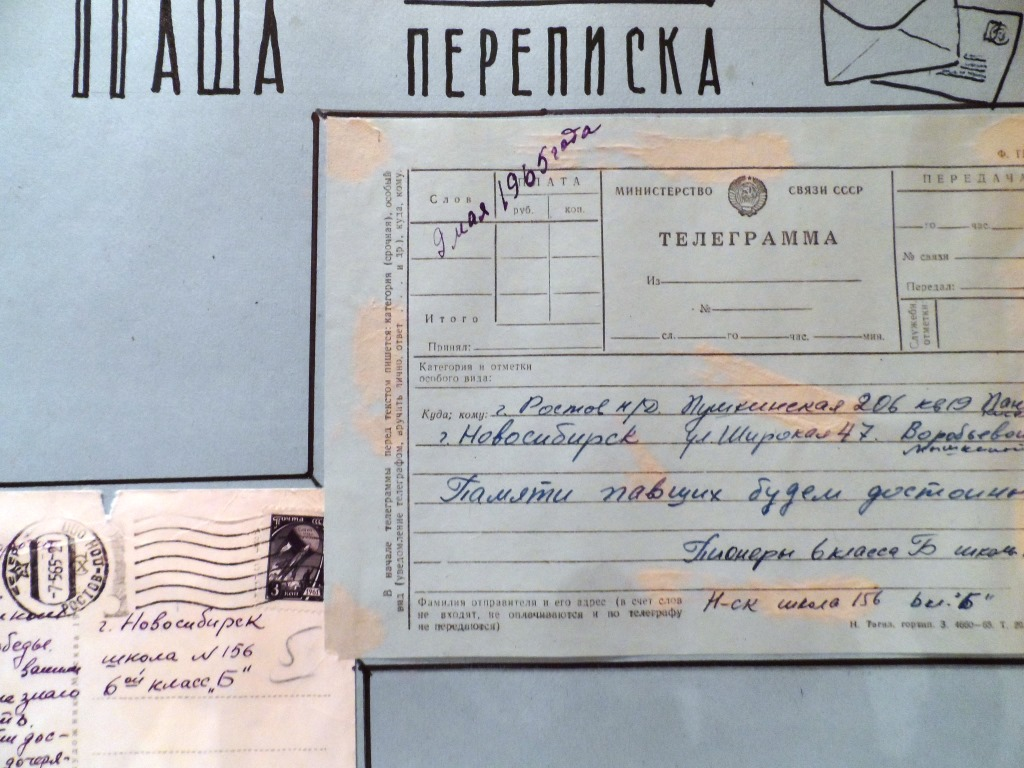 НАША ПЕРЕПИСКА
9 мая 1965 года
Ф.
В начале телеграммы перед текстом пишется: категория (срочная), особый
вид (уведомление телеграфом, вручить лично, ответ . . . и др.), куда, кому.
Слов
ПЛАТА
руб. коп.
Итого
Принял:
МИНИСТЕРСТВО СВЯЗИ СССР
ТЕЛЕГРАММА
Из
№
сл. го час. мин.
ПЕРЕДАЧА
го час.
№ связи
Передал:
Служебн
отметки
Категория и отметки
особого вида:
Куда; кому: г. Ростов н/Д. Пушкинская 206 кв 19
г. Новосибирск ул Широкая 47. Воробьевой
Памяти павших будем достойны
Пионеры 6 класса Б школ
Фамилия отправителя и его адрес (в счет слов
не входят, не оплачиваются и по телеграфу
не передаются)
Н-ск школа 156 6 кл. "Б"
Н. Тагил, горзип. З. 4660—63. Т.
-7565-21
РОСТОВ
Почта
3 коп 1961
г. Новосибирск
школа N 156
6ой класс „Б"
5
победы.
вашим
знало
дос-